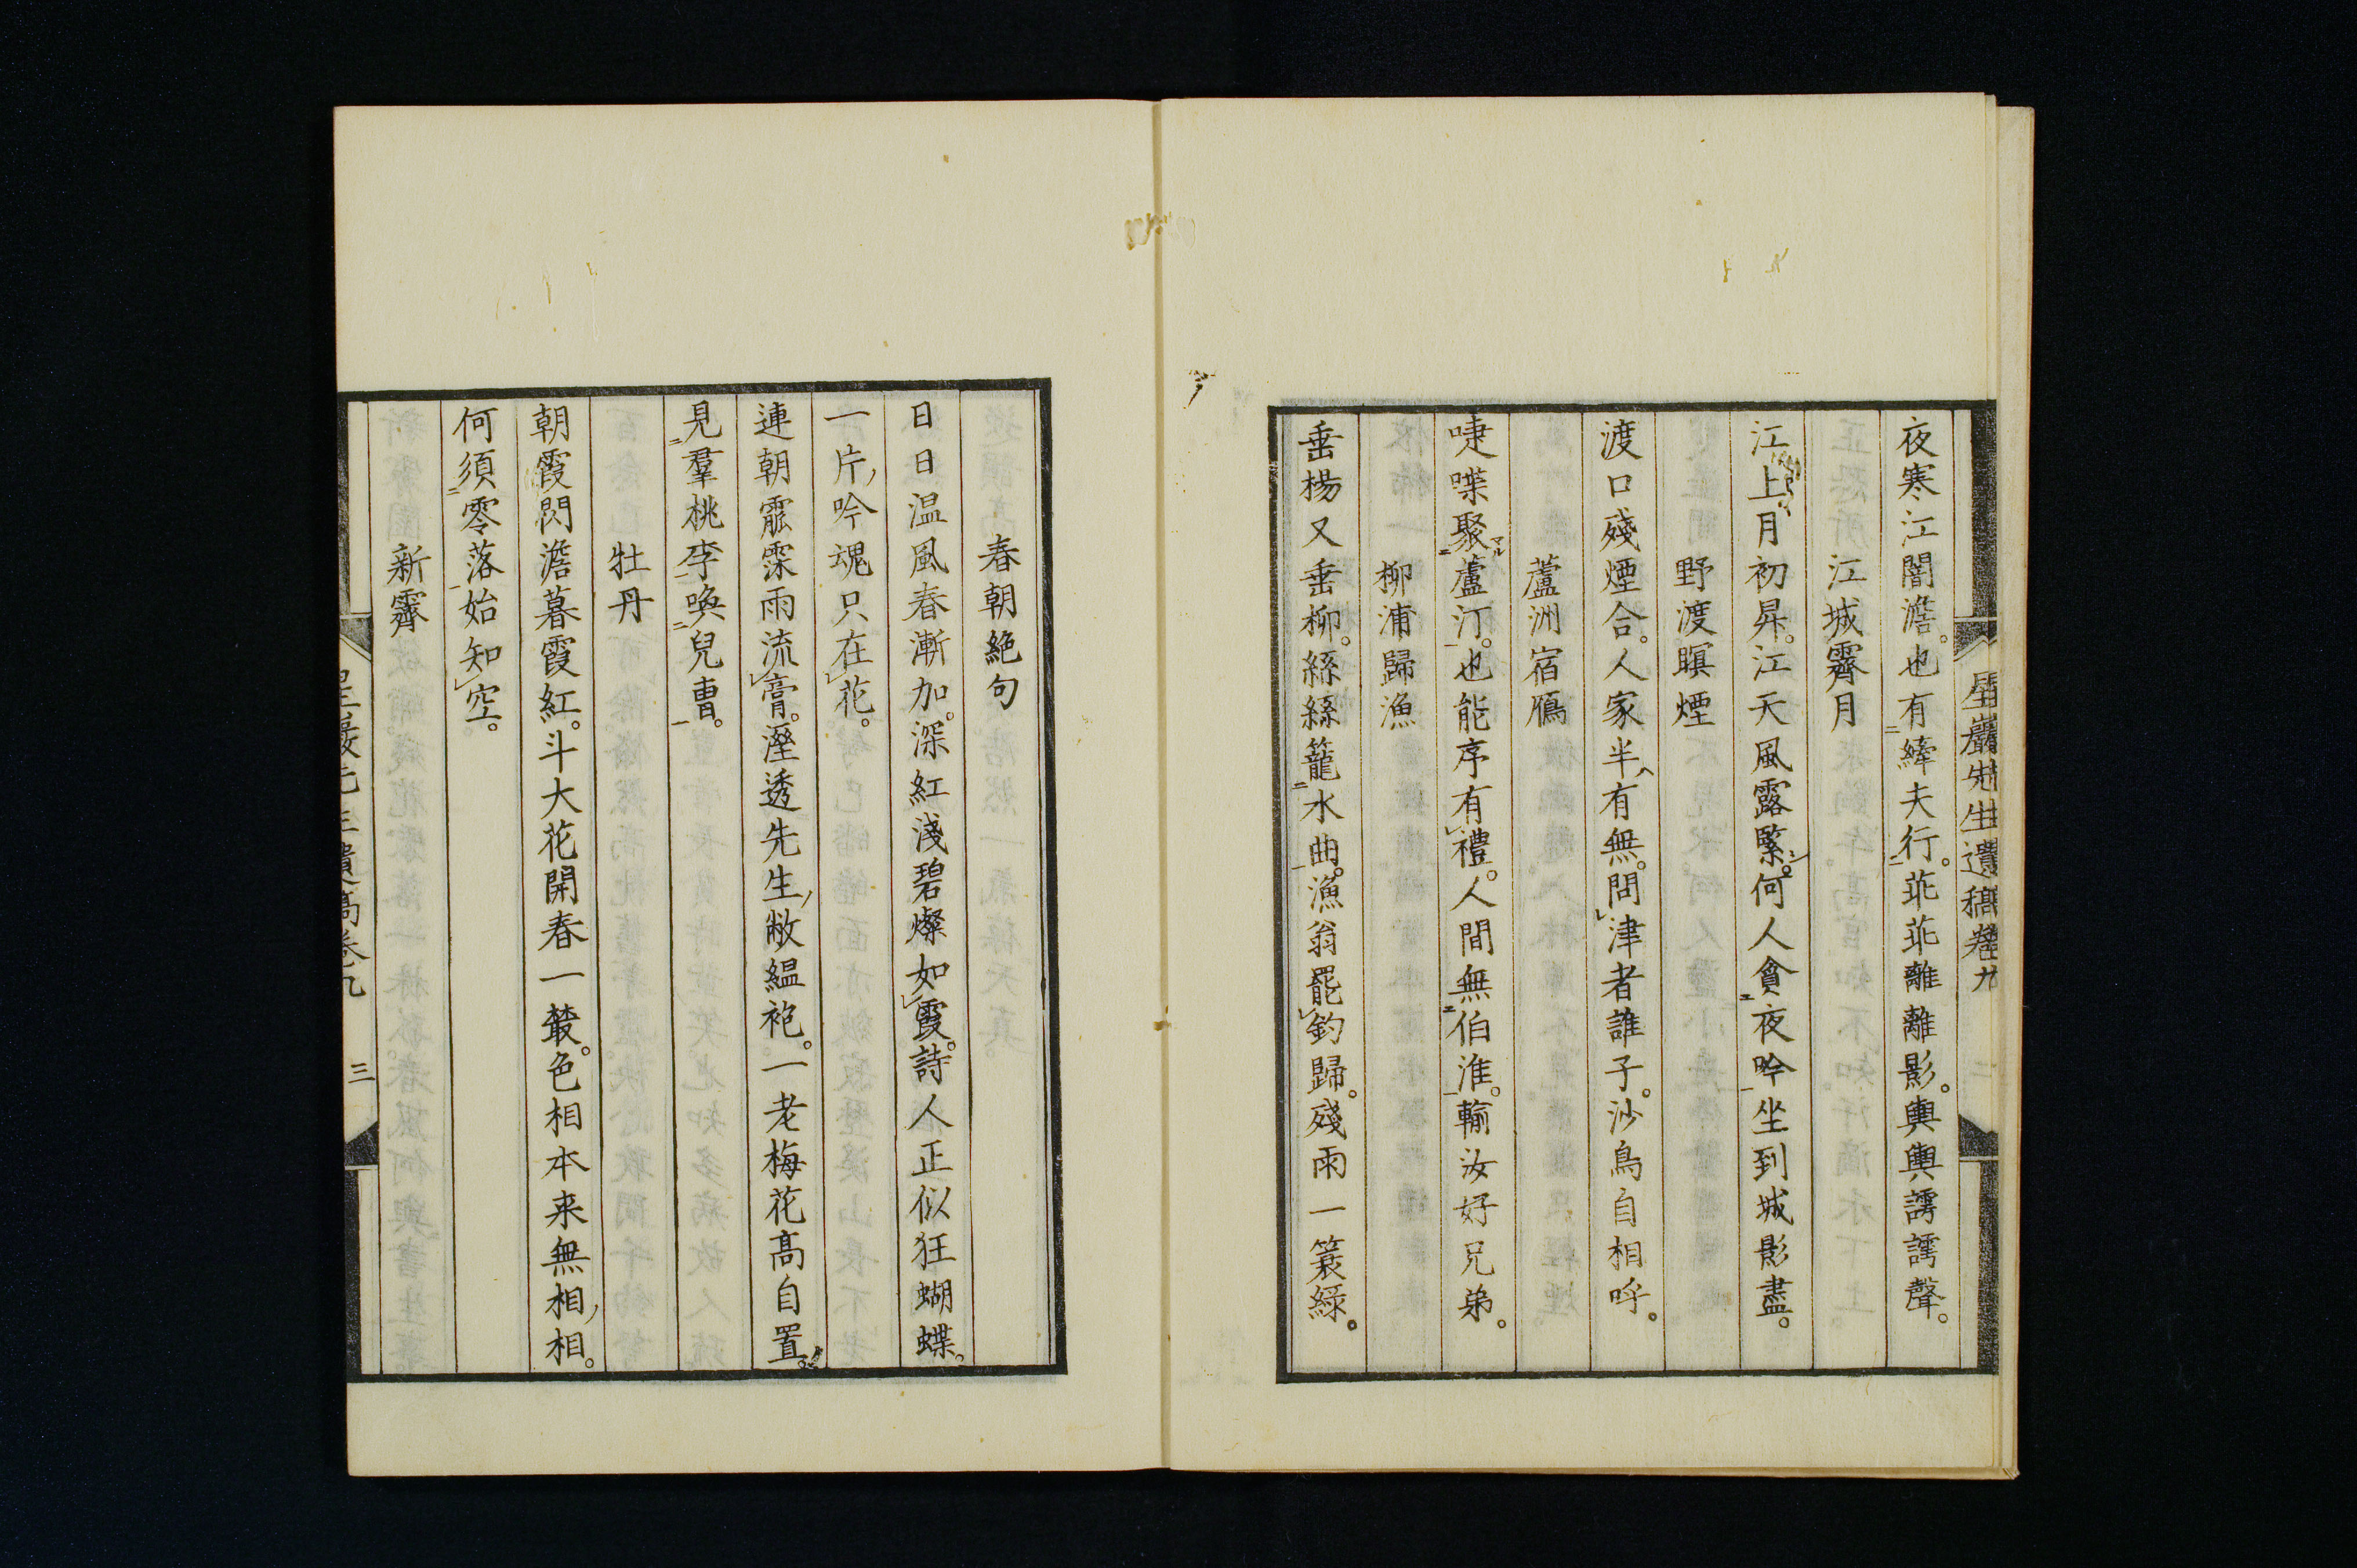 星巖先生遺稿卷九 二
夜寒江闇澹。也有縴夫行。乖乖離離影。輿輿謣謣聲。
江城霽月
江上月初昇。江天風露緊。何人貪夜吟坐到城影盡。
野渡暝煙
渡口殘煙合。人家半有無。問津者誰子。沙鳥自相呼。
蘆洲宿鴈
啑喋聚蘆汀。也能序有禮。人間無伯淮。輸汝好兄弟。
柳浦歸漁
垂楊又垂柳。絲絲籠水曲。漁翁罷釣歸。殘雨一簑綠。
春朝絕句
日日温風春漸加。深紅淺碧燦如霞。詩人正似狂蝴蝶。
一片吟魂只在花。
連朝霢霂雨流膏。溼透先生敝緼袍。一老梅花高自置。
見羣桃李喚兒曹。
牡丹
朝霞閃澹暮霞紅。斗大花開春一叢。色相本来無相相。
何須零落始知空。
新霽
星巖先生遺稿卷九 三